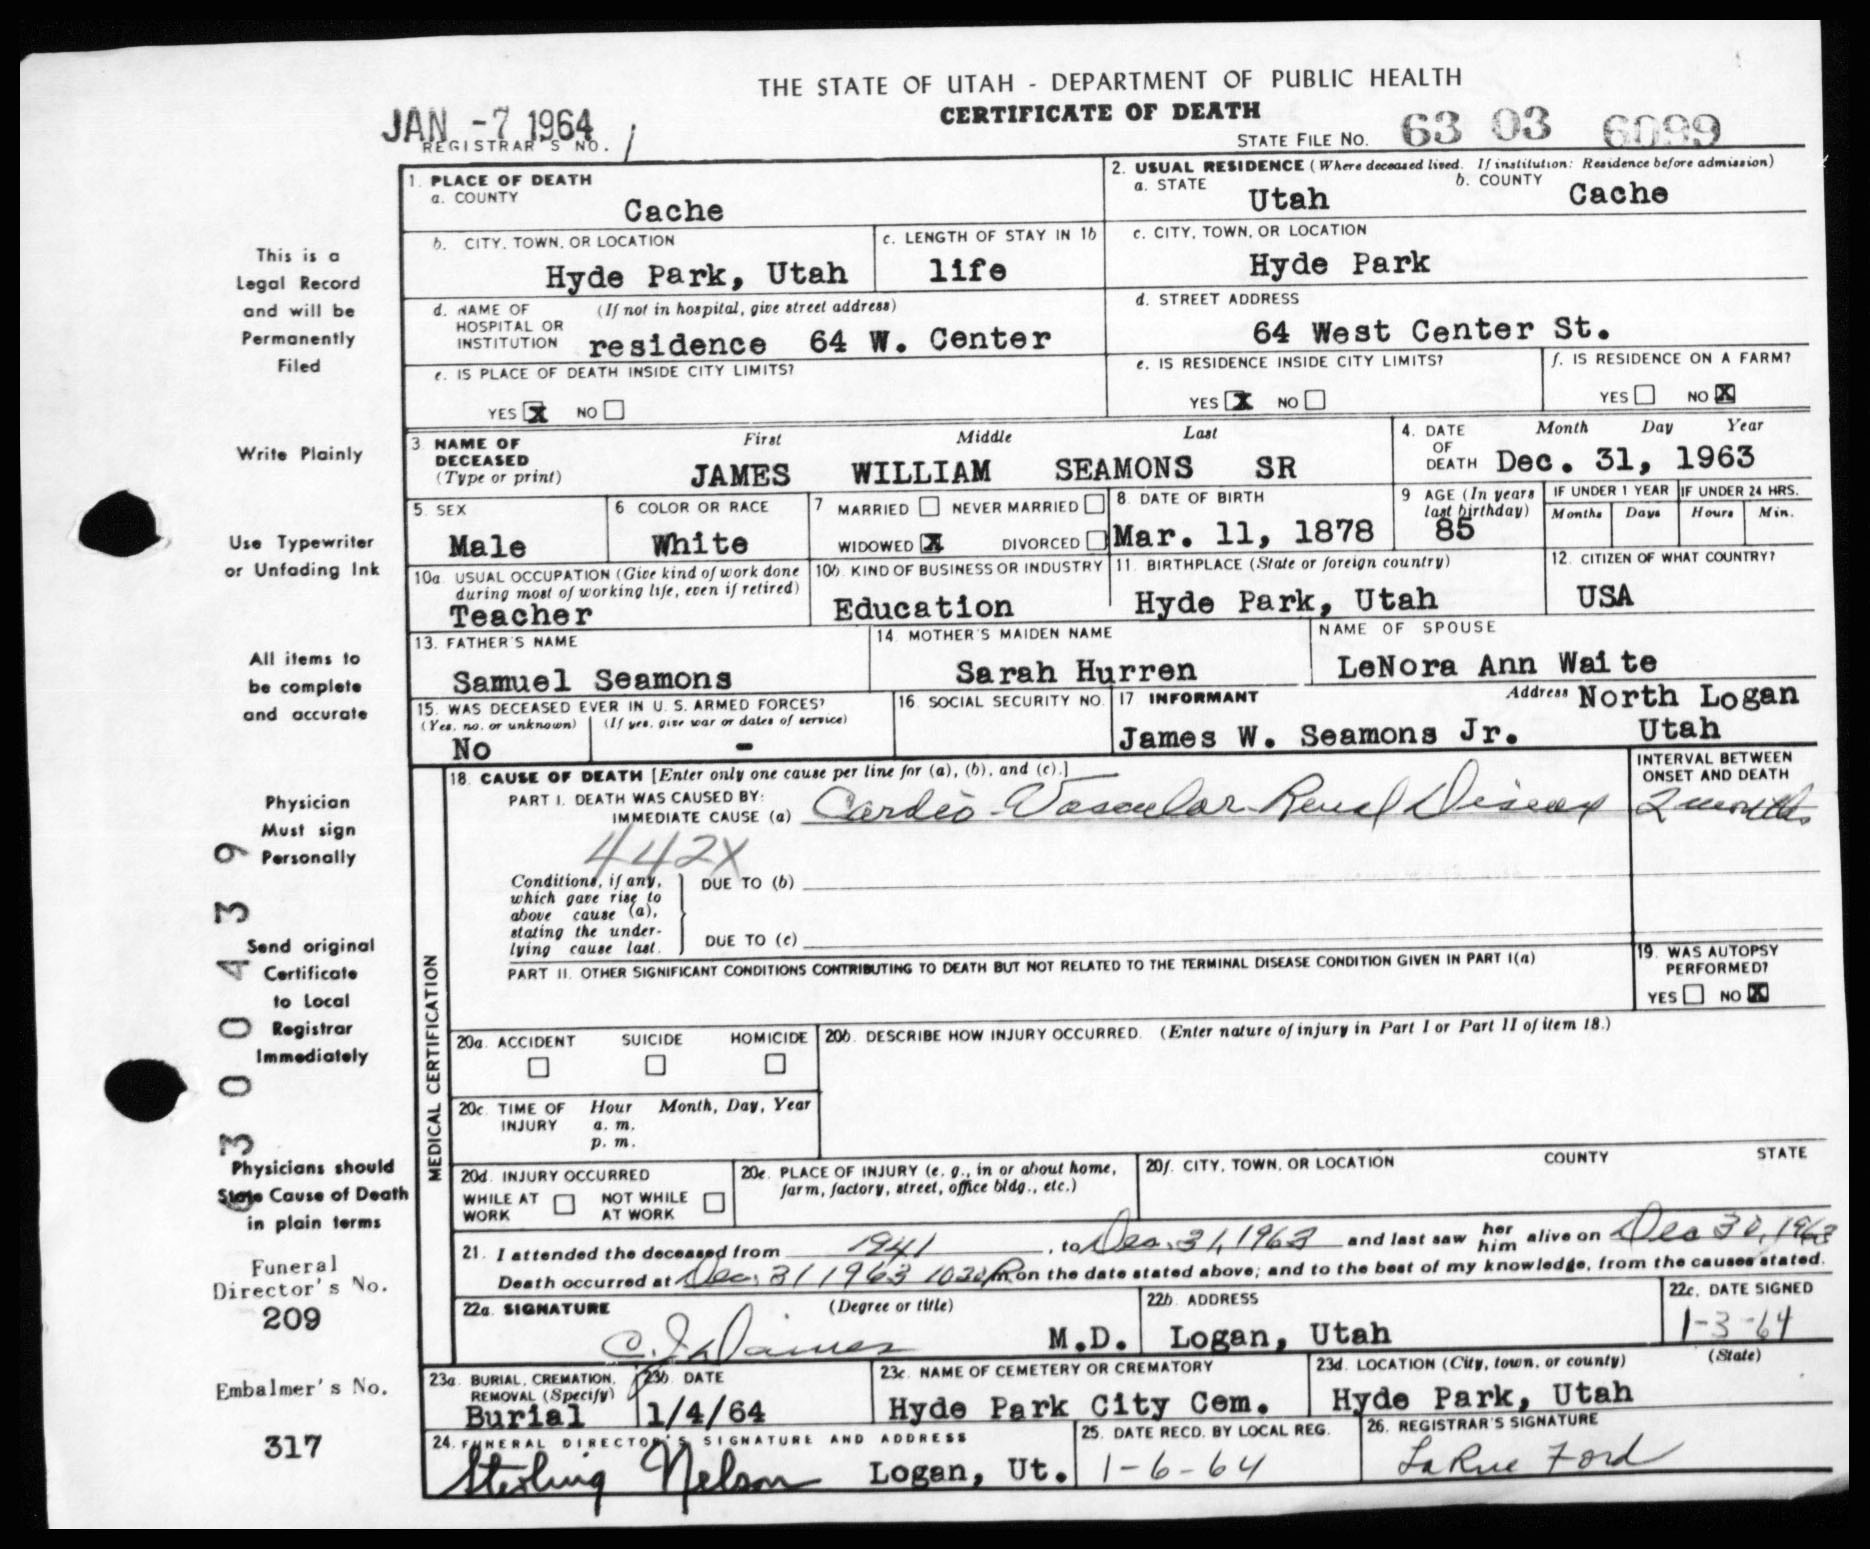 THE STATE OF UTAH - DEPARTMENT OF PUBLIC HEALTH
CERTIFICATE OF DEATH
JAN -7 1964
REGISTRAR'S NO. 1
STATE FILE NO. 63 03 6099
This is a
Legal Record
and will be
Permanently
Filed
Write Plainly
Use Typewriter
or Unfading Ink
All items to
be complete
and accurate
Physician
Must sign
Personally
Send original
Certificate
to Local
Registrar
Immediately
Physicians should
State Cause of Death
in plain terms
Funeral
Director's No.
209
Embalmer's No.
317
63 0 0 4 3 3 9
1. PLACE OF DEATH
a. COUNTY
Cache
2. USUAL RESIDENCE (Where deceased lived. If institution: Residence before admission)
a. STATE
Utah
b. COUNTY
Cache
b. CITY, TOWN, OR LOCATION
Hyde Park, Utah
c. LENGTH OF STAY IN 1b
life
c. CITY, TOWN, OR LOCATION
Hyde Park
d. NAME OF HOSPITAL OR INSTITUTION
(If not in hospital, give street address)
residence 64 W. Center
d. STREET ADDRESS
64 West Center St.
e. IS PLACE OF DEATH INSIDE CITY LIMITS?
YES X NO
e. IS RESIDENCE INSIDE CITY LIMITS?
YES X NO
f. IS RESIDENCE ON A FARM?
YES NO X
3. NAME OF DECEASED
(Type or print)
First Middle Last
JAMES WILLIAM SEAMONS SR
4. DATE OF DEATH
Month Day Year
Dec. 31, 1963
5. SEX
Male
6 COLOR OR RACE
White
7 MARRIED NEVER MARRIED
WIDOWED X DIVORCED
8. DATE OF BIRTH
Mar. 11, 1878
9 AGE (In years last birthday)
85
IF UNDER 1 YEAR
Months Days
IF UNDER 24 HRS.
Hours Min.
10a. USUAL OCCUPATION (Give kind of work done
during most of working life, even if retired)
Teacher
10b. KIND OF BUSINESS OR INDUSTRY
Education
11. BIRTHPLACE (State or foreign country)
Hyde Park, Utah
12. CITIZEN OF WHAT COUNTRY?
USA
13. FATHER'S NAME
Samuel Seamons
14. MOTHER'S MAIDEN NAME
Sarah Hurren
NAME OF SPOUSE
LeNora Ann Waite
15. WAS DECEASED EVER IN U. S. ARMED FORCES?
(Yes, no, or unknown) (If yes, give war or dates of service)
No -
16. SOCIAL SECURITY NO.
17 INFORMANT
Address North Logan
James W. Seamons Jr. Utah
MEDICAL CERTIFICATION
18. CAUSE OF DEATH [Enter only one cause per line for (a), (b), and (c).]
INTERVAL BETWEEN
ONSET AND DEATH
PART I. DEATH WAS CAUSED BY:
IMMEDIATE CAUSE (a) Cardio-Vascular Renal Disease
2 months
442X
Conditions, if any,
which gave rise to
above cause (a),
stating the under-
lying cause last.
DUE TO (b)
DUE TO (c)
PART II. OTHER SIGNIFICANT CONDITIONS CONTRIBUTING TO DEATH BUT NOT RELATED TO THE TERMINAL DISEASE CONDITION GIVEN IN PART I(a)
19. WAS AUTOPSY
PERFORMED?
YES NO X
20a. ACCIDENT SUICIDE HOMICIDE
20b. DESCRIBE HOW INJURY OCCURRED. (Enter nature of injury in Part I or Part II of item 18.)
20c. TIME OF INJURY
Hour Month, Day, Year
a. m.
p. m.
20d. INJURY OCCURRED
WHILE AT WORK NOT WHILE AT WORK
20e. PLACE OF INJURY (e. g., in or about home,
farm, factory, street, office bldg., etc.)
20f. CITY, TOWN, OR LOCATION COUNTY STATE
21. I attended the deceased from 1941, to Dec. 31, 1963 and last saw her him alive on Dec 30, 1963
Death occurred at Dec. 31 1963 1030 P m on the date stated above; and to the best of my knowledge, from the causes stated.
22a. SIGNATURE (Degree or title)
C. J. Daines M.D.
22b. ADDRESS
Logan, Utah
22c. DATE SIGNED
1-3-64
23a. BURIAL, CREMATION,
REMOVAL (Specify)
Burial
23b. DATE
1/4/64
23c. NAME OF CEMETERY OR CREMATORY
Hyde Park City Cem.
23d. LOCATION (City, town, or county) (State)
Hyde Park, Utah
24. FUNERAL DIRECTOR'S SIGNATURE AND ADDRESS
Sterling Nelson Logan, Ut.
25. DATE RECD. BY LOCAL REG.
1-6-64
26. REGISTRAR'S SIGNATURE
LaRue Ford